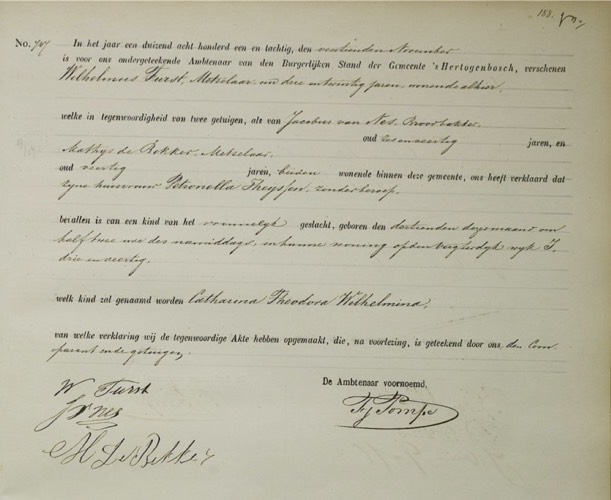 188.
No. 747 In het jaar een duizend acht honderd een en tachtig, den veertienden November
is voor ons ondergeteekende Ambtenaar van den Burgerlijken Stand der Gemeente 's Hertogenbosch, verschenen
Wilhelmus Furst, Metselaar, oud drie en twintig jaren, wonende alhier,
welke in tegenwoordigheid van twee getuigen, als van Jacobus van Nes, Broodbakker,
oud zes en veertig jaren, en
Mathys de Bekker, Metselaar,
oud veertig jaren, beiden wonende binnen deze gemeente, ons heeft verklaard dat
zyne huisvrouw Petronella Theyssen, zonder beroep,
bevallen is van een kind van het vrouwelyk geslacht, geboren den dertienden dezer maand om
half twee ure des namiddags, in hunne woning op den Vughterdyk wyk I.
drie en veertig.
welk kind zal genaamd worden Catharina Theodora Wilhelmina.
van welke verklaring wij de tegenwoordige Akte hebben opgemaakt, die, na voorlezing, is geteekend door ons, den Com-
parant en de getuigen,
De Ambtenaar voornoemd,
W Furst
M de Bekker